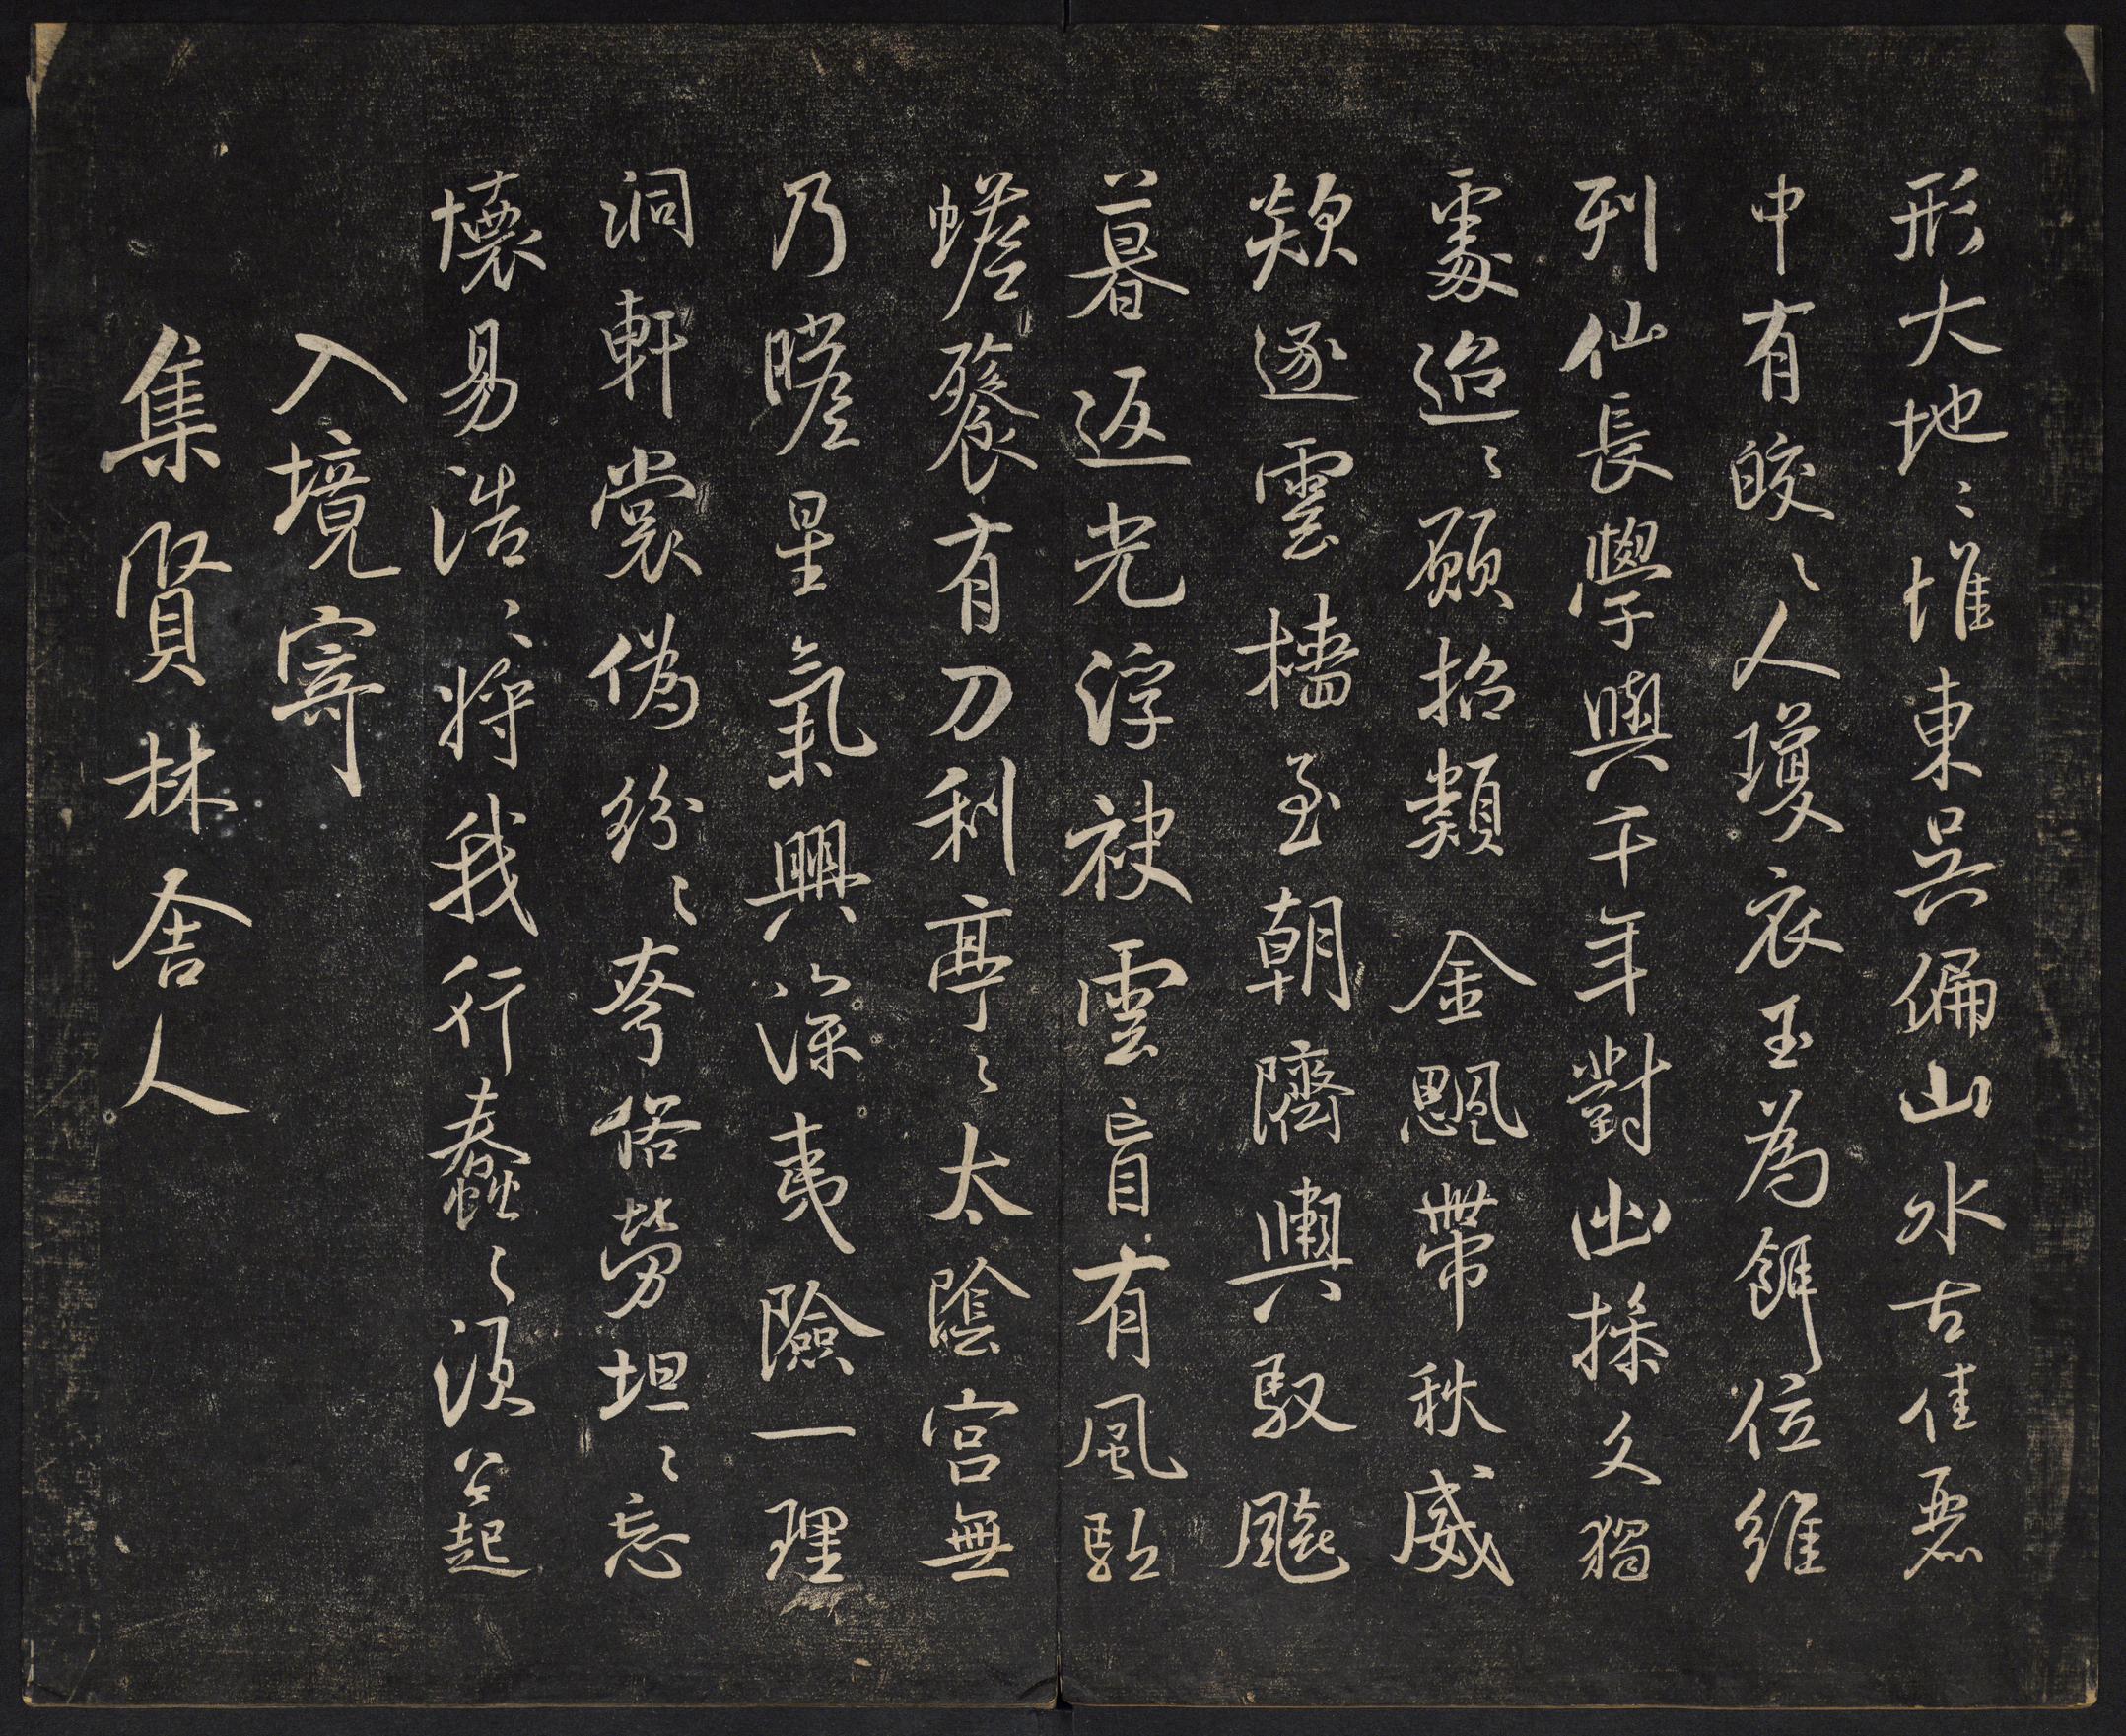 形大地〻惟東吳偏山水古佳麗
中有皎〻人瓊衣玉為餌位維
列仙長學與千年對幽操久獨
處迢〻願招類金飔帶秋威
欻逐雲檣至朝隮輿馭飈
暮返光浮袂雲盲有風驅
蟾餮有刀利亭〻太陰宮無
乃瞻星氣興深夷險一理
洞軒裳偽紛〻夸俗勞坦〻忘
懷易浩〻將我行蠢〻須公起
入境寄
集賢林舍人